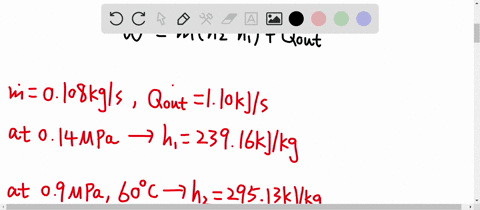 ṁ=0.108kg/s , Q̇out=1.10kJ/s
at 0.14MPa → h₁=239.16kJ/kg
at 0.9MPa, 60°C → h₂=295.13kJ/kg